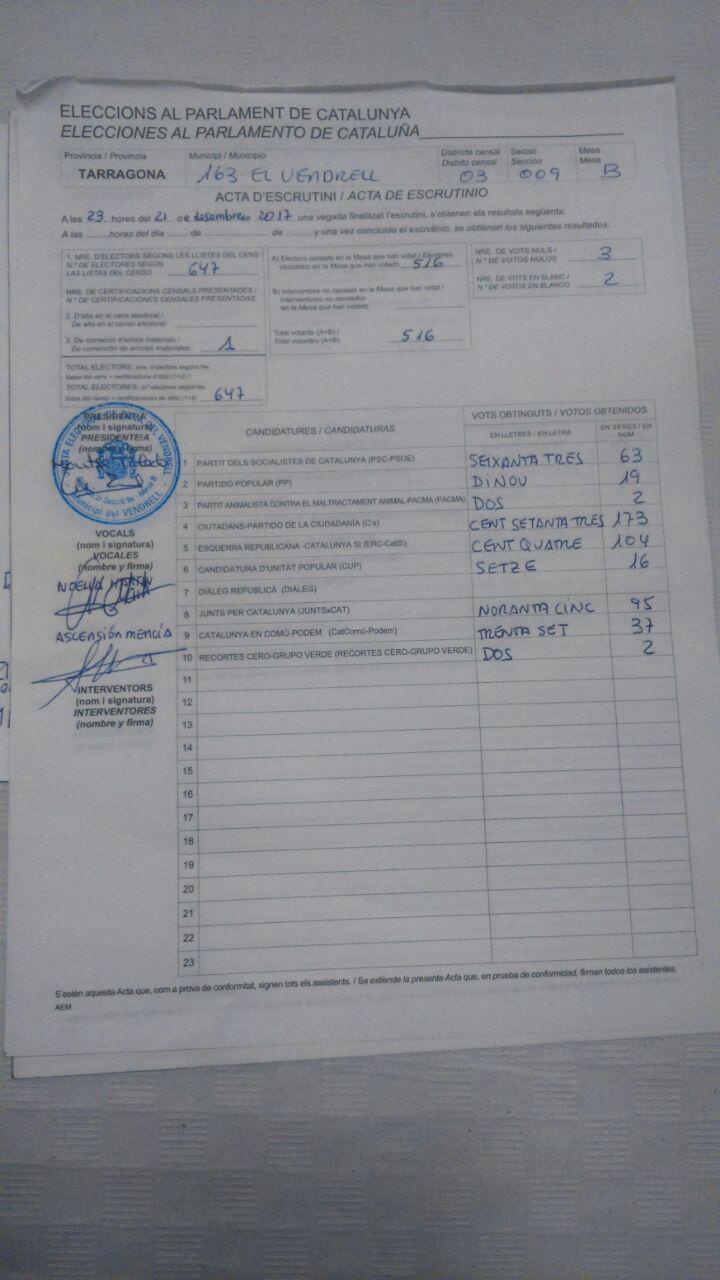 ELECCIONS AL PARLAMENT DE CATALUNYA
ELECCIONES AL PARLAMENTO DE CATALUÑA
Provincia / Provincia Municipi / Municipio Districte censal Secció Mesa
Distrito censal Sección Mesa
TARRAGONA 163 EL VENDRELL 03 009 B
ACTA D'ESCRUTINI / ACTA DE ESCRUTINIO
A les 23 hores del 21 de desembre de 2017, una vegada finalitzat l'escrutini, s'obtenen els resultats següents:
A las ____ horas del día ____ de ____ de ____, y una vez concluido el escrutinio, se obtienen los siguientes resultados:
1. NRE. D'ELECTORS SEGONS LES LLISTES DEL CENS
N.º DE ELECTORES SEGÚN
LAS LISTAS DEL CENSO 647
NRE. DE CERTIFICACIONS CENSALS PRESENTADES /
N.º DE CERTIFICACIONES CENSALES PRESENTADAS
2. D'alta en el cens electoral /
De alta en el censo electoral
3. De correcció d'errors materials /
De corrección de errores materiales 1
TOTAL ELECTORS:
TOTAL ELECTORES: 647
A) Electors censats en la Mesa que han votat / Electores
censados en la Mesa que han votado 516
B) Interventors no censats en la Mesa que han votat /
Interventores no censados
en la Mesa que han votado
Total votants (A+B) /
Total votantes (A+B) 516
NRE. DE VOTS NULS /
N.º DE VOTOS NULOS 3
NRE. DE VOTS EN BLANC /
N.º DE VOTOS EN BLANCO 2
PRESIDENT/A
(nom i signatura)
PRESIDENTE/A
(nombre y firma)
Municipi del VENDRELL
VOCALS
(nom i signatura)
VOCALES
(nombre y firma)
NOELIA MARTIN
ASCENSIÓN MENCÍA
INTERVENTORS
(nom i signatura)
INTERVENTORES
(nombre y firma)
CANDIDATURES / CANDIDATURAS VOTS OBTINGUTS / VOTOS OBTENIDOS
EN LLETRES / EN LETRA EN XIFRES / EN NUM
1 PARTIT DELS SOCIALISTES DE CATALUNYA (PSC-PSOE) SEIXANTA TRES 63
2 PARTIDO POPULAR (PP) DINOU 19
3 PARTIT ANIMALISTA CONTRA EL MALTRACTAMENT ANIMAL-PACMA (PACMA) DOS 2
4 CIUTADANS-PARTIDO DE LA CIUDADANÍA (C's) CENT SETANTA TRES 173
5 ESQUERRA REPUBLICANA -CATALUNYA SI (ERC-CatSI) CENT QUATRE 104
6 CANDIDATURA D'UNITAT POPULAR (CUP) SETZE 16
7 DIÀLEG REPUBLICÀ (DIÀLEG)
8 JUNTS PER CATALUNYA (JUNTSxCAT) NORANTA CINC 95
9 CATALUNYA EN COMÚ-PODEM (CatComú-Podem) TRENTA SET 37
10 RECORTES CERO-GRUPO VERDE (RECORTES CERO-GRUPO VERDE) DOS 2
11
12
13
14
15
16
17
18
19
20
21
22
23
S'estén aquesta Acta que, com a prova de conformitat, signen tots els assistents. / Se extiende la presente Acta que, en prueba de conformidad, firman todos los asistentes.
AEM